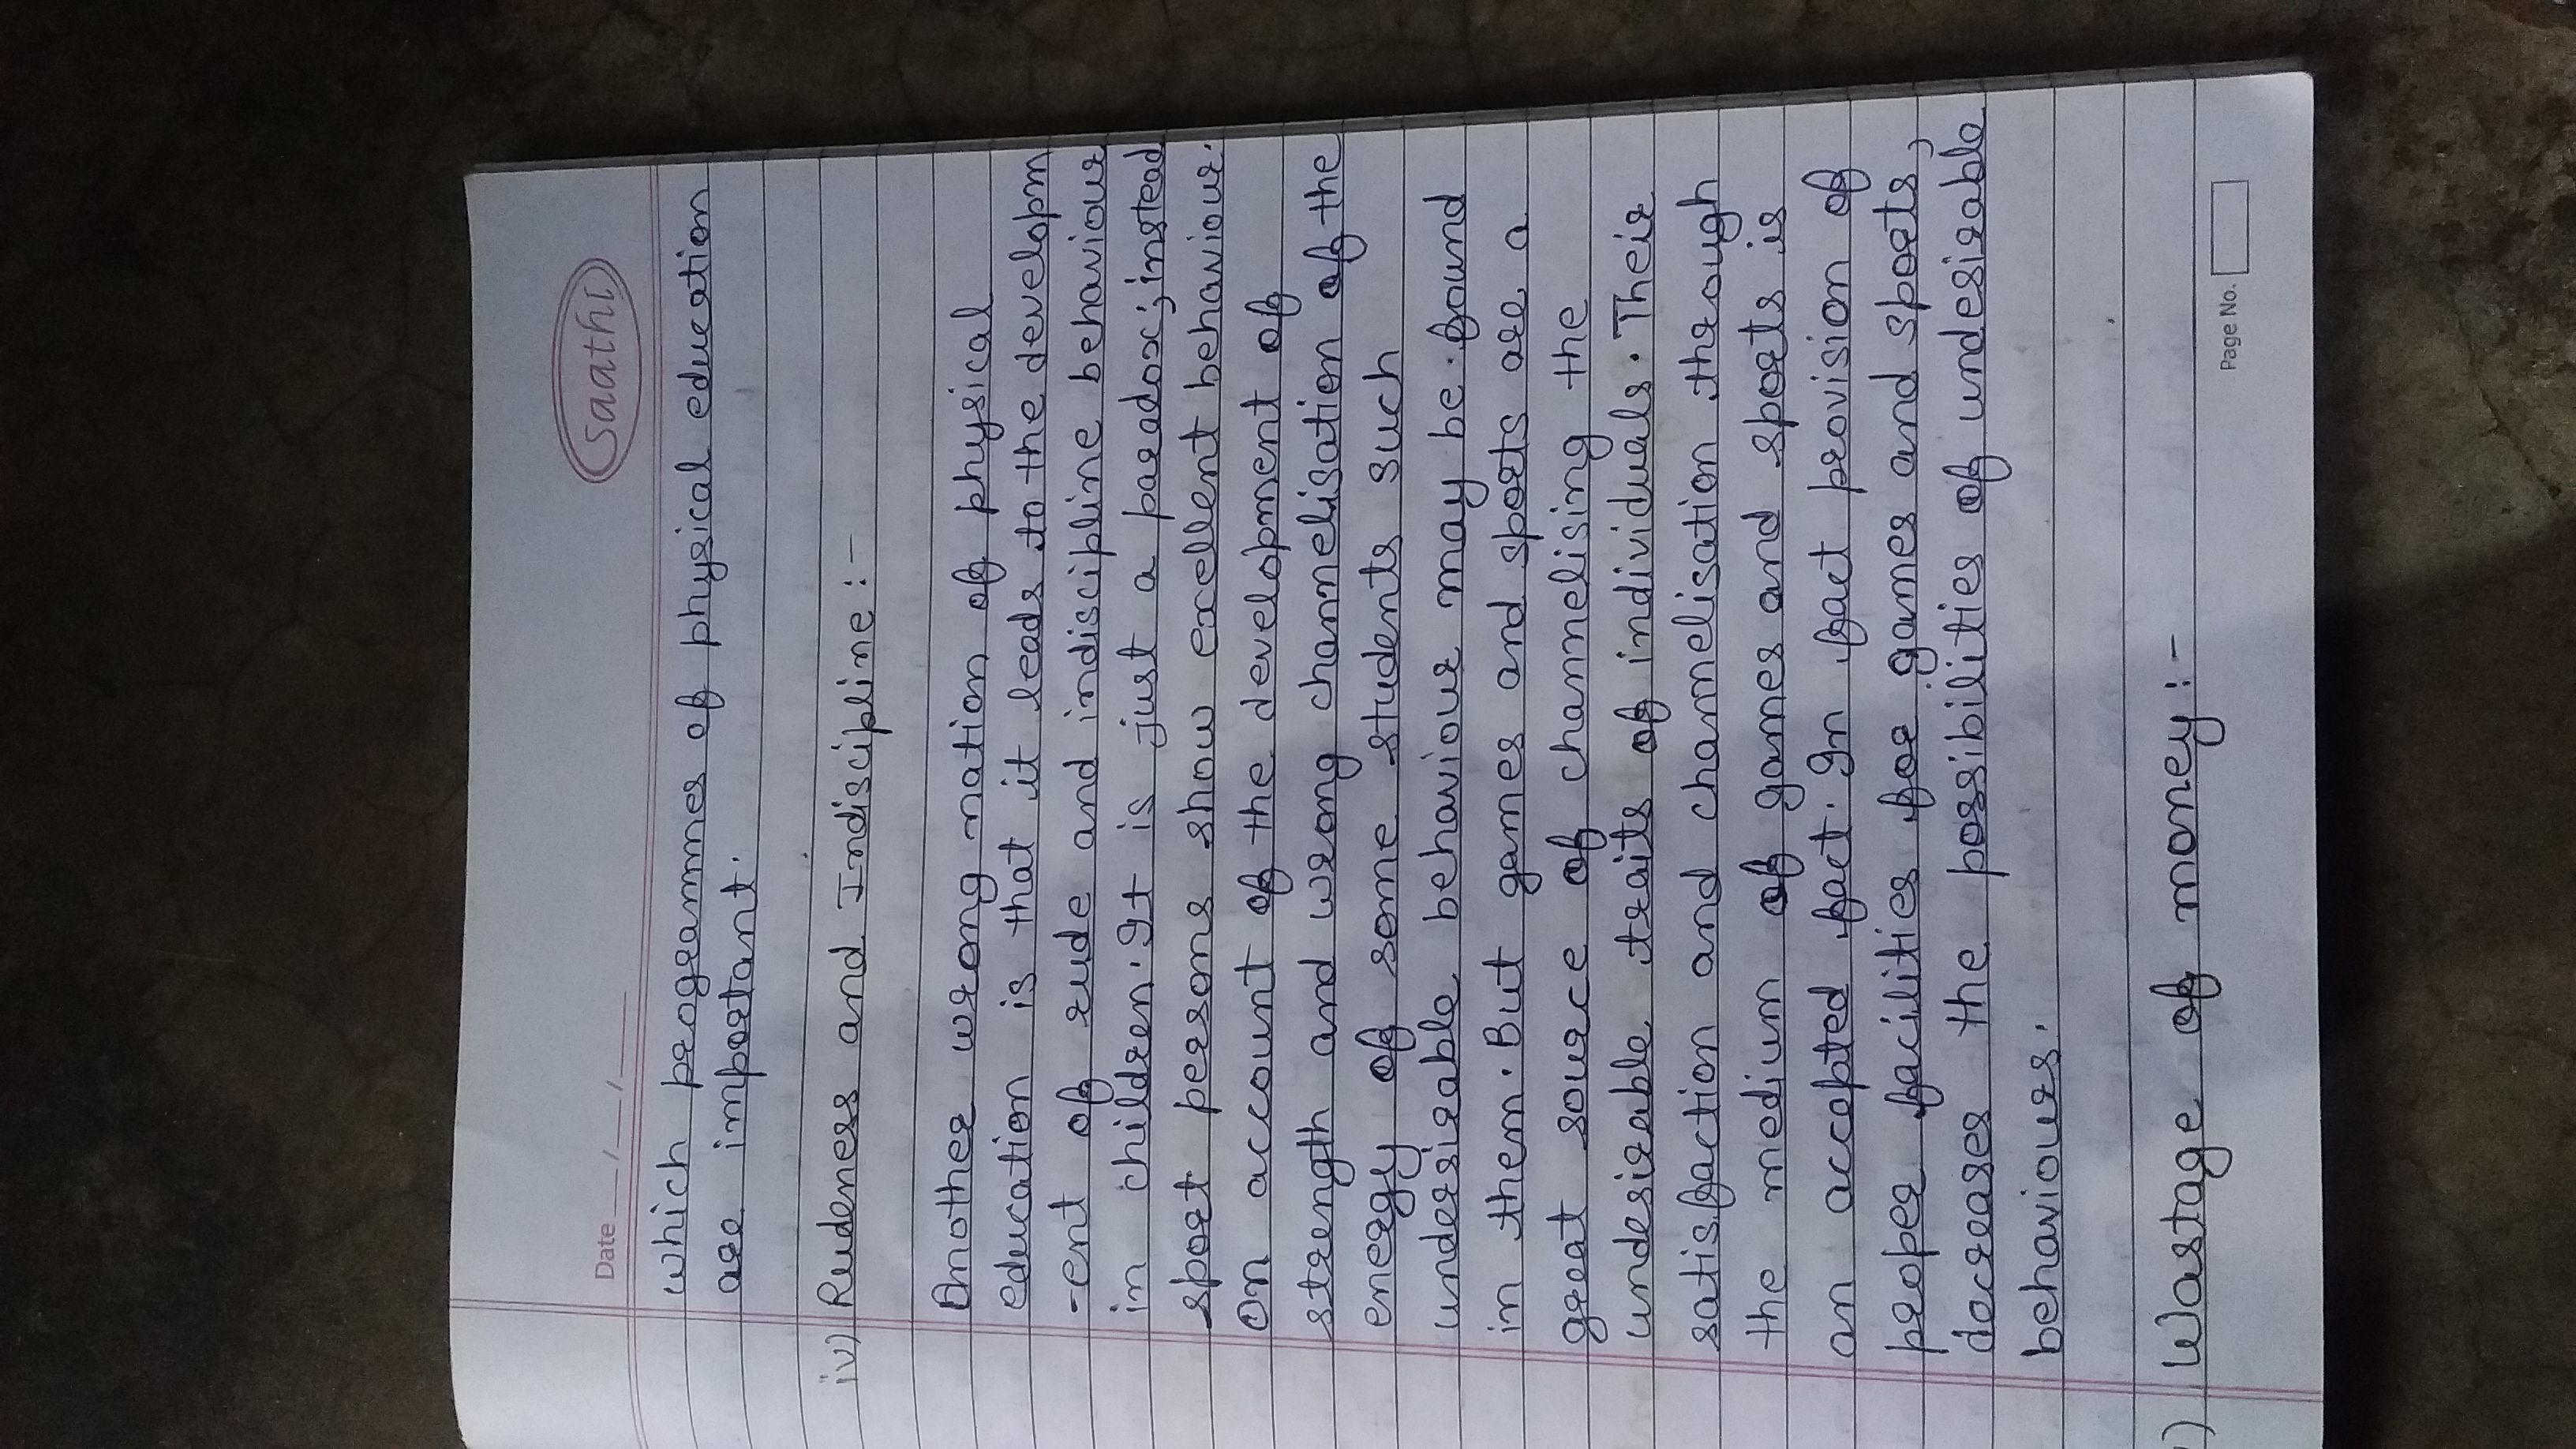 Saathi
Date __/__/__
which programmes of physical education
are important.
iv) Rudeness and Indiscipline :-
Another wrong nation of physical
education is that it leads to the developm
-ent of rude and indiscipline behaviour
in children. It is just a paradox; instead
sport persons show excellent behaviour.
On account of the development of
strength and wrong channelisation of the
energy of some students such
undersirable behaviour may be found
in them. But games and sports are a
great source of channelising the
undesirable traits of individuals. Their
satisfaction and channelisation through
the medium of games and sports is
an accepted fact. In fact provision of
proper facilities for games and sports,
decreases the possibilities of undesirable
behaviours.
) Wastage of money:-
Page No.